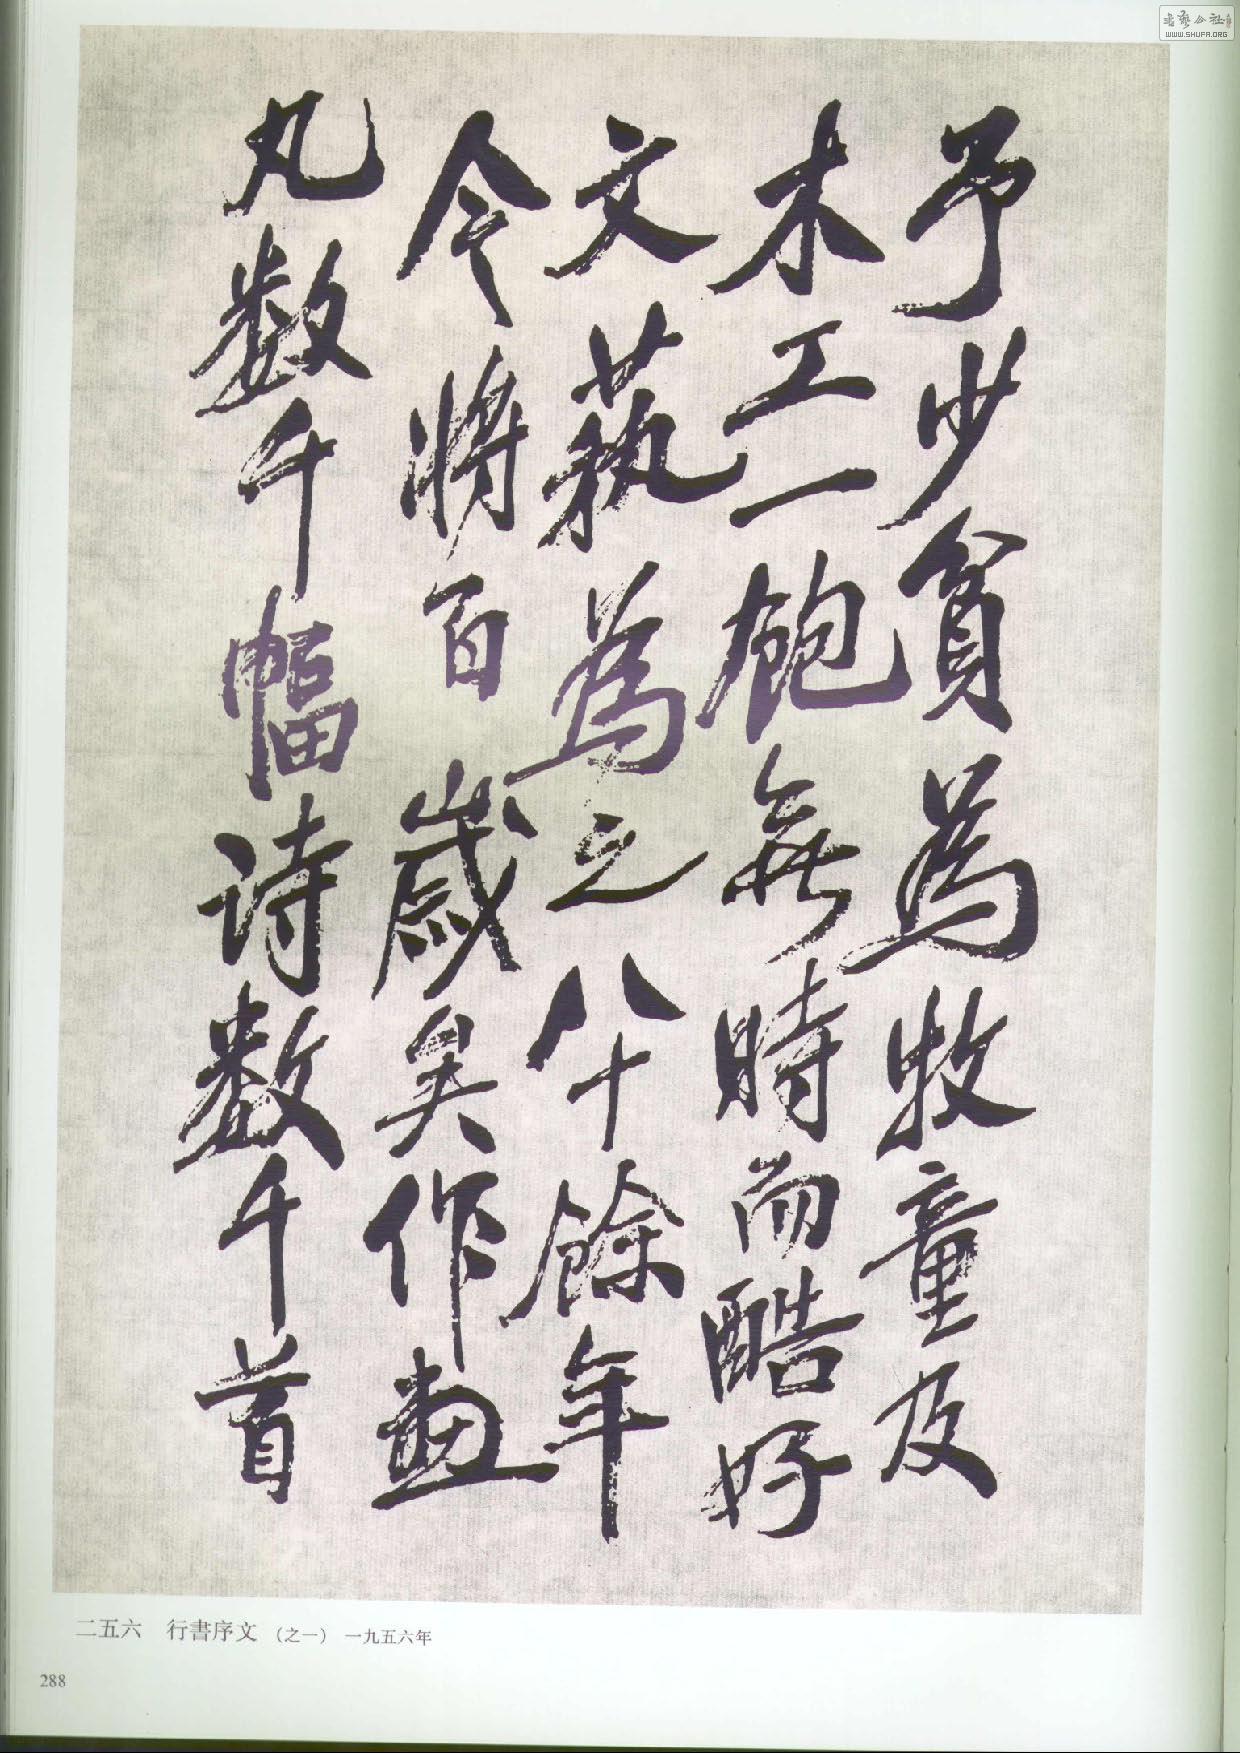 予少貧為牧童及
木工一飽無時而酷好
文藝為之八十餘年
今將百歲矣作画
凡数千幅诗数千首
二五六 行書序文（之一） 一九五六年
288
書藝公社
WWW.SHUFA.ORG